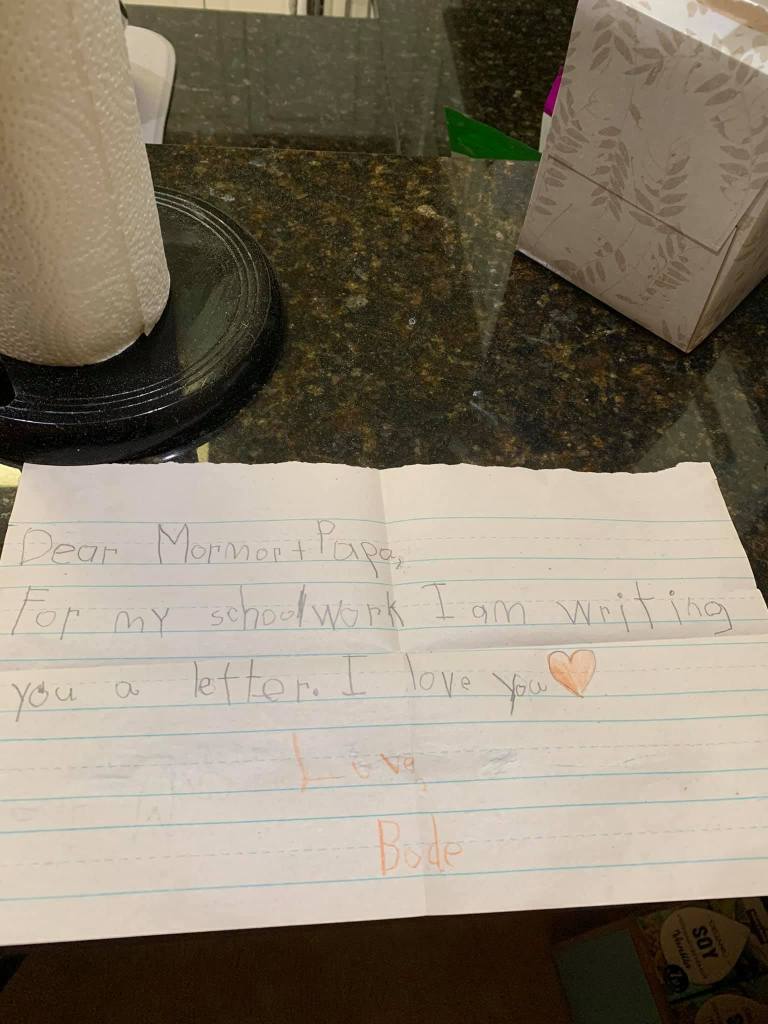 Dear Mormor + Papa,
For my schoolwork I am writing
you a letter. I love you
Love,
Bode
SOY
Vanilla